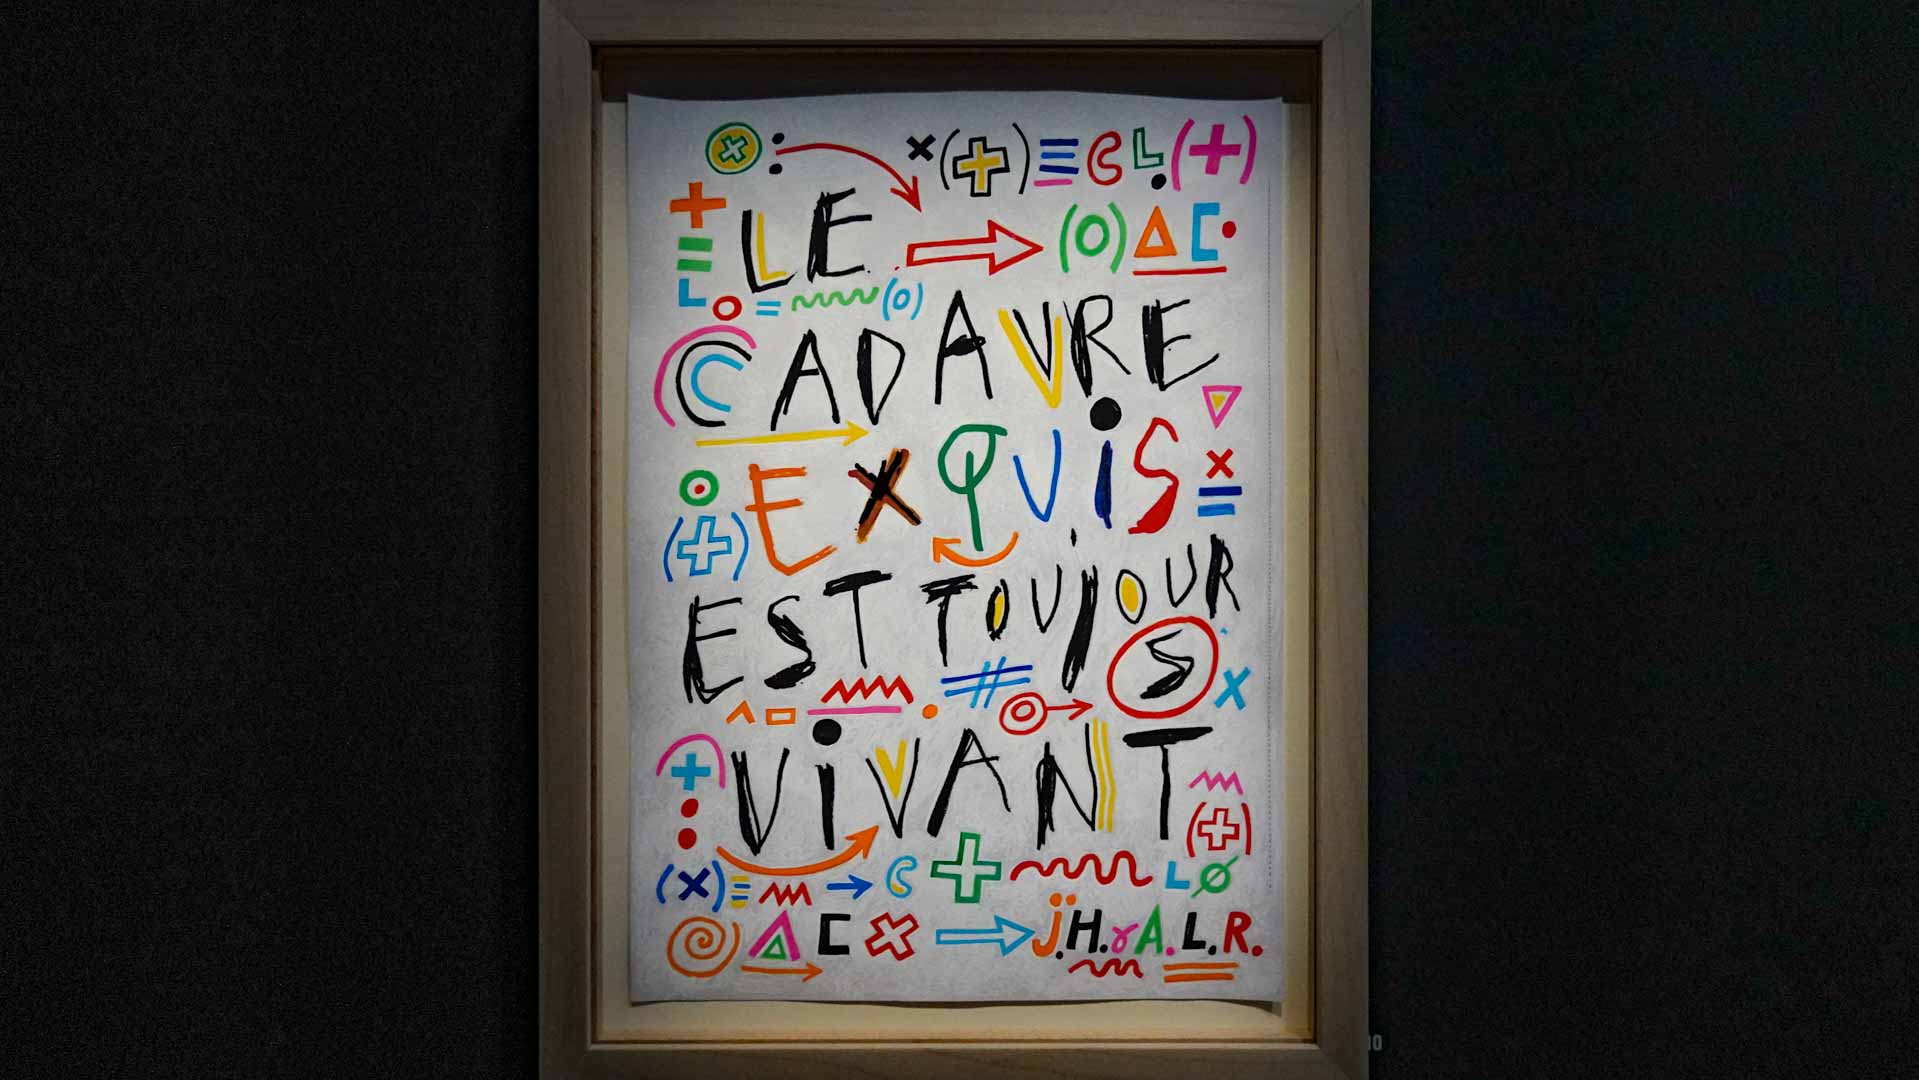 LE
CADAVRE
EXQUiS
EST TOUJOURS
ViVANT
j.H.&A.L.R.